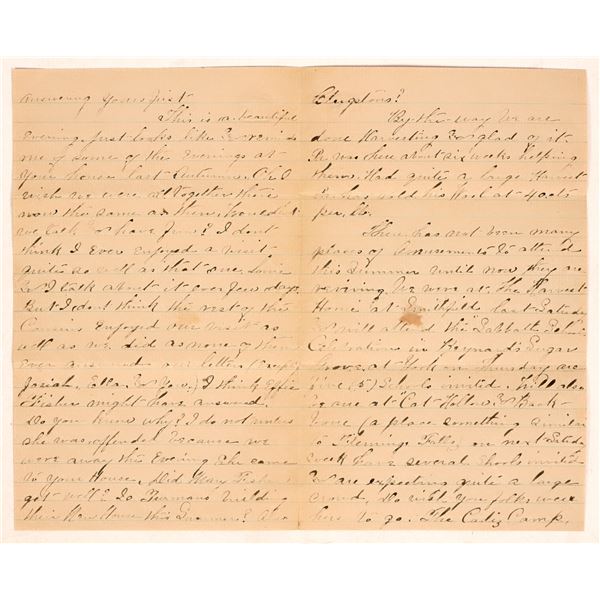 answering yours first
This is a beautiful
Evening. Just looks like & reminds
me of some of the Evenings at
Your house last Autumn. Oh I
wish we were all together there
now the same as then, wouldn't
we talk & have fun? I don't
think I Ever Enjoyed a visit
quite so well as that one,
& I talk about it ever few days
But I don't think the rest of the
Cousins Enjoyed our visit as
well as we did as none of them
Ever answered our letters (except
Josiah, Ella & You,) I think Effie
Fisher might have answered.
Do you know why? I do not unless
she was offended because we
were away the Evening she came
to Your House. Did Mary Fisher
get well? Is Hermans building
their New House this Summer? Also
Clugstons?
By the way We are
done Harvesting & glad of it.
Pa was here about six weeks helping
them. Had quite a large Harvest
has sold his Wool at 40 cts
per. lb.
There has not been many
places of Amusements to attend
this Summer until now they are
reviving. We were at The Harvest
Home at Smithfield last Saturday
& will attend the "Sabbath School
Celebration in Sugar
Grove at York on Thursday are
five (5) Schools invited. Will also
be one at "Cat-Hollow & Back-
bone (a place something similar
to Fleming on next
week have several Schools invited
& are expecting quite a large
crowd, Do wish you folks were
here to go. The Cadiz Camp,